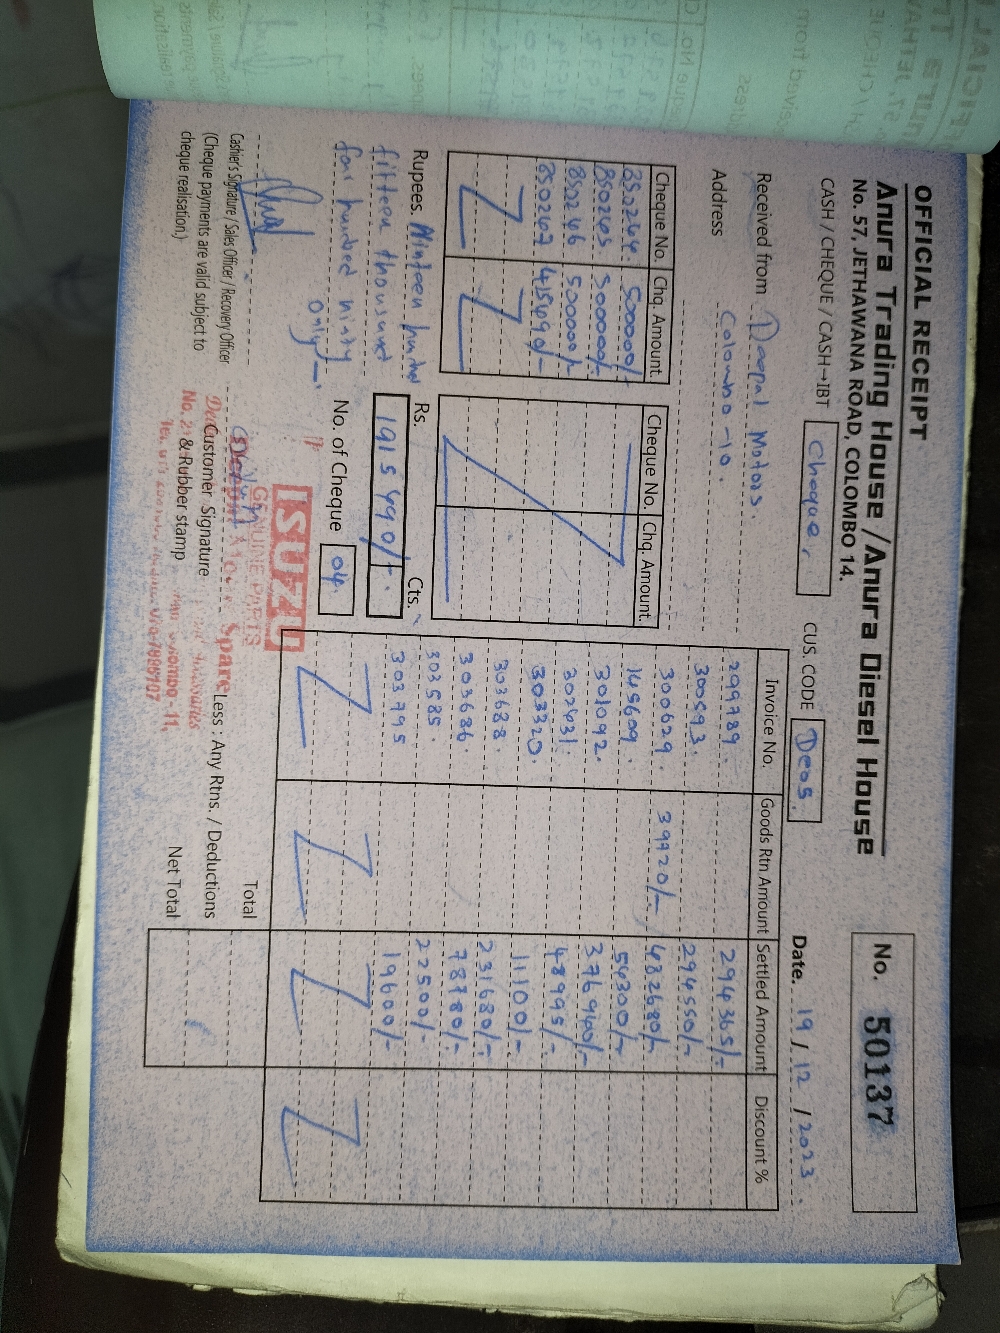 OFFICIAL RECEIPT
Anura Trading House / Anura Diesel House
No. 57, JETHAWANA ROAD, COLOMBO 14.
No. 50137
CASH / CHEQUE / CASH→IBT Cheque,
CUS. CODE De05
Date. 19 / 12 / 2023
Received from Deepal Motors.
Address Colombo - 10.
Cheque No. Chq. Amount. Cheque No. Chq. Amount.
850264. 500000/-
850265 500000/-
850266 500000/-
850267 415490/-
Rupees. Ninteen hundred
fifteen thousand
four hundred ninty
only/-
Rs. Cts.
1915490/-
No. of Cheque 04
Invoice No. Goods Rtn Amount Settled Amount Discount %
299789. 294365/-
300593. 294550/-
300629. 39920/- 482680/-
145609. 54300/-
301092. 376940/-
302631. 48995/-
303320. 11100/-
303688. 231680/-
303686. 78780/-
303585. 22500/-
303795 19600/-
Total
Less : Any Rtns. / Deductions
Net Total
Cashier's Signature / Sales Officer / Recovery Officer
(Cheque payments are valid subject to
cheque realisation.)
Customer Signature
& Rubber stamp
ISUZU
GENUINE PARTS
Spare